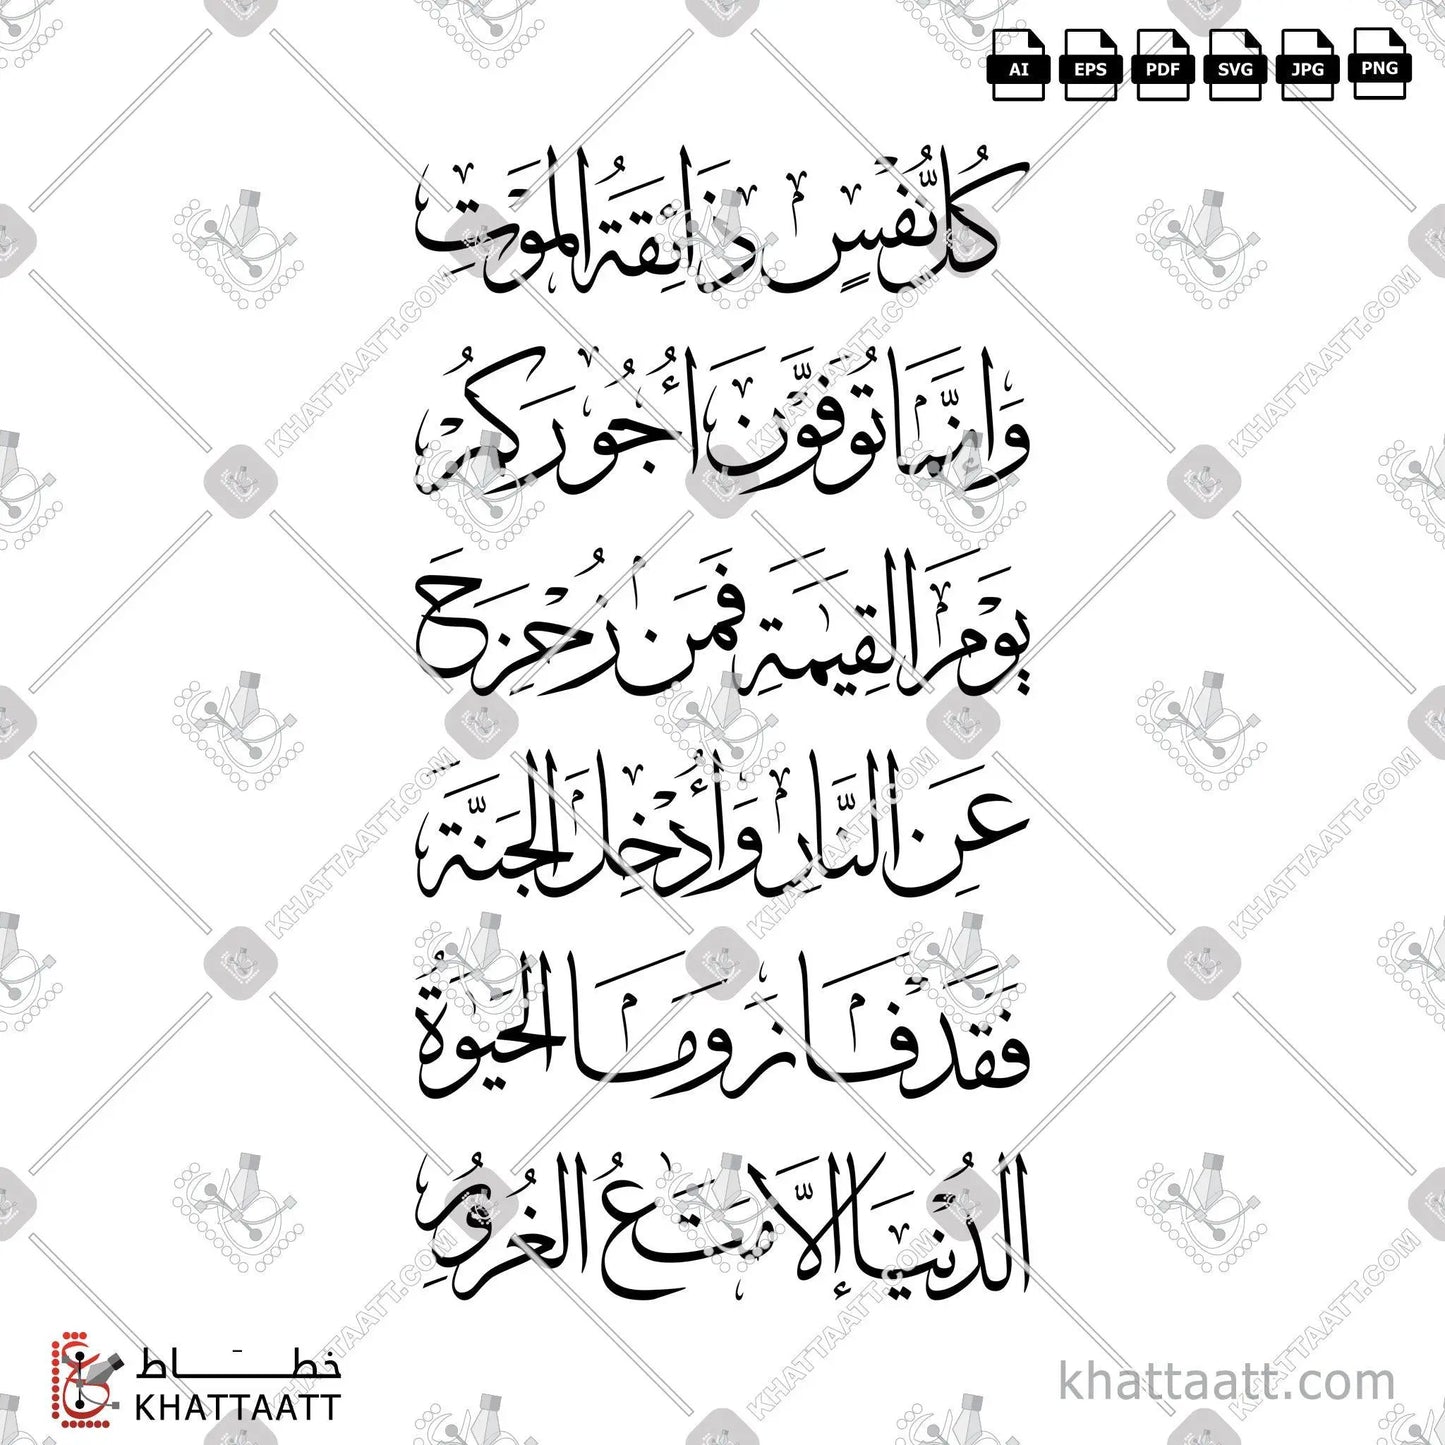 AI EPS PDF SVG JPG PNG
كُلُّ نَفْسٍ ذَائِقَةُ الْمَوْتِ
وَإِنَّمَا تُوَفَّوْنَ أُجُورَكُمْ
يَوْمَ الْقِيٰمَةِ فَمَنْ زُحْزِحَ
عَنِ النَّارِ وَأُدْخِلَ الْجَنَّةَ
فَقَدْ فَازَ وَمَا الْحَيٰوةُ
الدُّنْيَا إِلَّا مَتٰعُ الْغُرُورِ
خطاط
KHATTAATT
khattaatt.com
KHATTAATT.COM